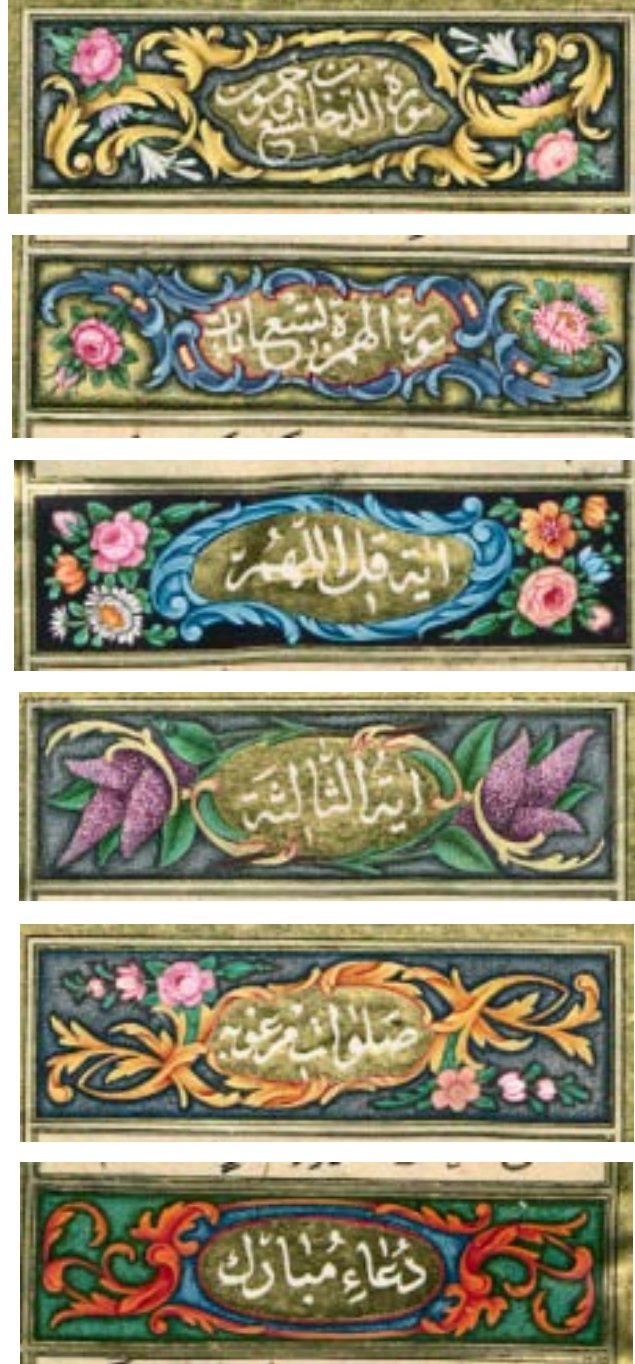 سورة الدخان تسع
وخمسون ت
سورة الهمزة تسع ايات
اية قل اللهم
اية الثالثة
صلوات مرغوبه
دعاء مبارك